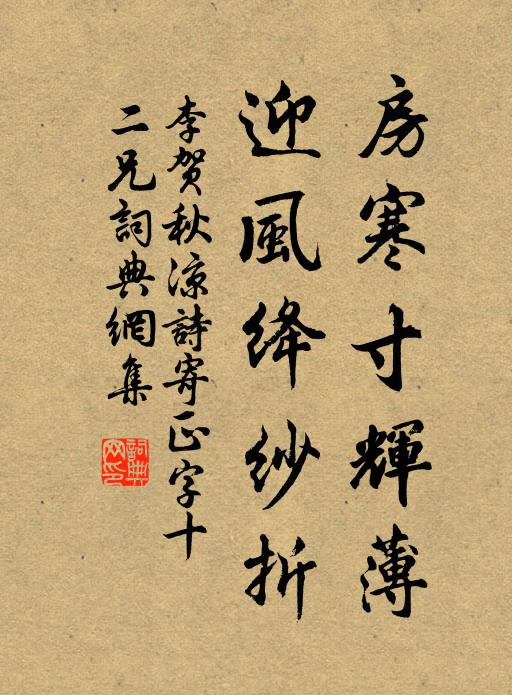 房寒寸輝薄
迎風絳紗折
李贺秋涼詩寄正字十
二兄詞典網集
詞典
网印